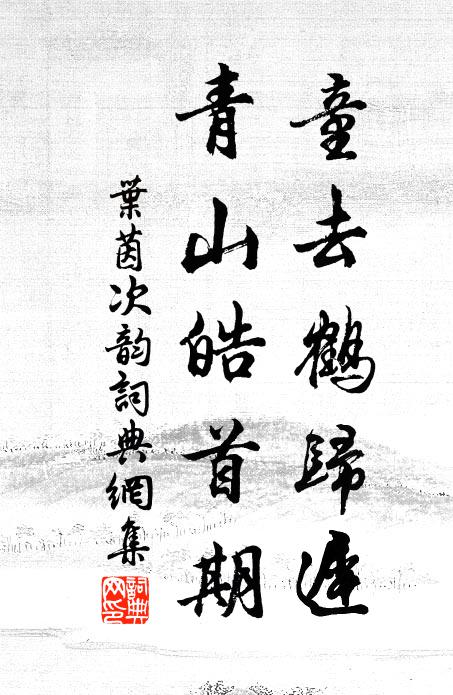 童去鶴歸遲
青山皓首期
葉茵次韵詞典網集
詞典網印